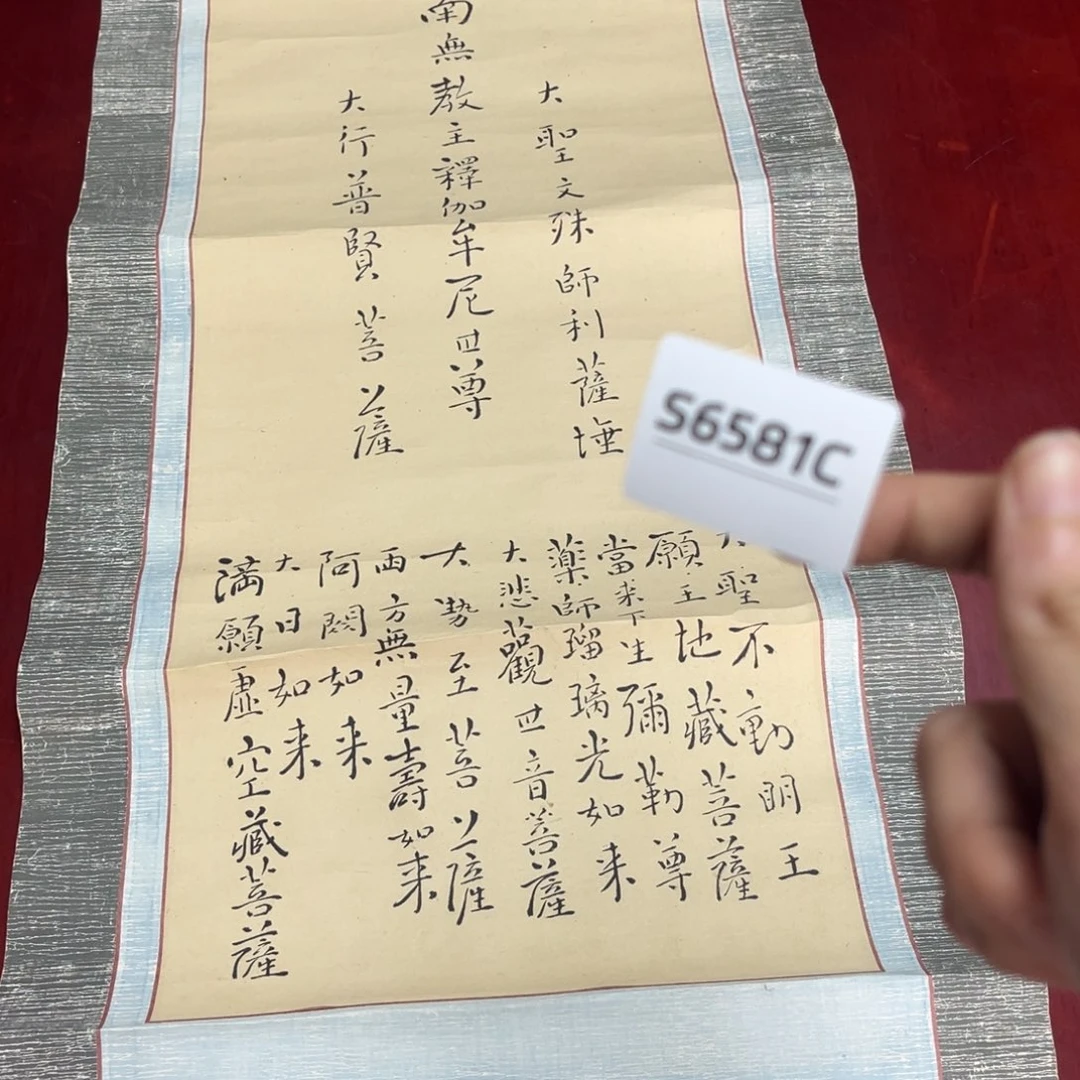 大聖文殊師利薩埵
南無教主釋伽牟尼世尊
大行普賢菩薩
大聖不動明王
願主地藏菩薩
當来下生彌勒尊
薬師瑠璃光如来
大悲觀世音菩薩
大勢至菩薩
西方無量壽如来
阿閦如来
大日如来
満願虚空藏菩薩
S6581C